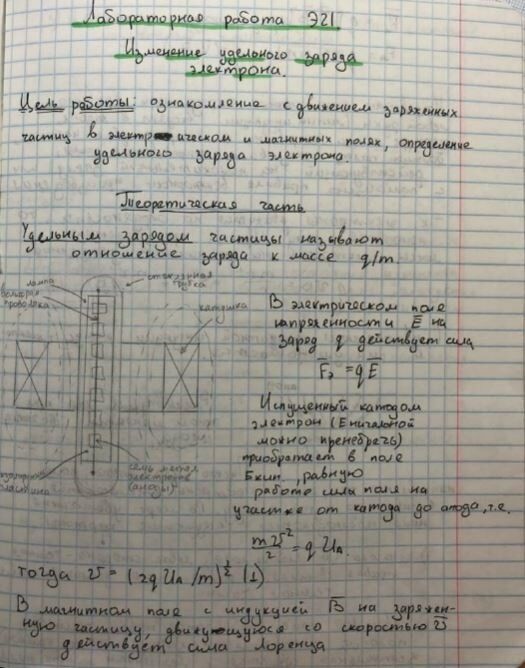 Лабораторная работа Э21
Изменение удельного заряда
электрона.
Цель работы: ознакомление с движением заряженных
частиц в электрическом и магнитных полях, определение
удельного заряда электрона.
Теоретическая часть
Удельным зарядом частицы называют
отношение заряда к массе q/m
стеклянная
трубка
лампа
вольфрам
проволока
катушка
В электрическом поле
напряженности E̅ на
заряд q действует сила
F̅э = qE̅
Испущенный катодом
электрон (Eначальной
можно пренебречь)
приобретает в поле
Eкин., равную
работе силы поля на
участке от катода до анода, т.е.
семь метал
электродов
(аноды)
пластина
mυ²/2 = qUA.
тогда υ = (2qUA/m)^½ (1)
В магнитном поле с индукцией B̅ на заряжен-
ную частицу, движующуюся со скоростью υ̅
действует сила Лоренца